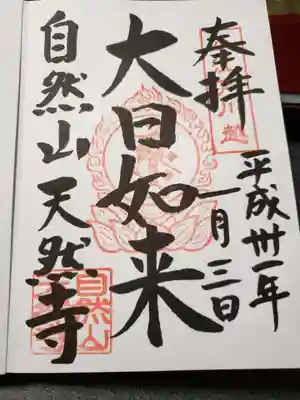 奉拝
平成卅一年
一月三日
大日如来
自然山天然寺
自然山